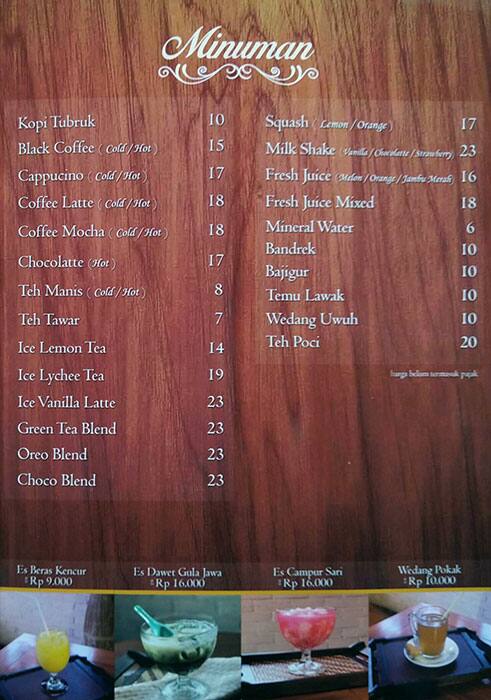 Minuman
Kopi Tubruk 10
Black Coffee ( Cold / Hot ) 15
Cappucino ( Cold / Hot ) 17
Coffee Latte ( Cold / Hot ) 18
Coffee Mocha ( Cold / Hot ) 18
Chocolatte ( Hot ) 17
Teh Manis ( Cold / Hot ) 8
Teh Tawar 7
Ice Lemon Tea 14
Ice Lychee Tea 19
Ice Vanilla Latte 23
Green Tea Blend 23
Oreo Blend 23
Choco Blend 23
Squash ( Lemon / Orange ) 17
Milk Shake (Vanilla / Chocolatte / Strawberry) 23
Fresh Juice (Melon / Orange / Jambu Merah) 16
Fresh Juice Mixed 18
Mineral Water 6
Bandrek 10
Bajigur 10
Temu Lawak 10
Wedang Uwuh 10
Teh Poci 20
harga belum termasuk pajak
Es Beras Kencur
Rp 9.000
Es Dawet Gula Jawa
Rp 16.000
Es Campur Sari
Rp 16.000
Wedang Pokak
Rp 10.000